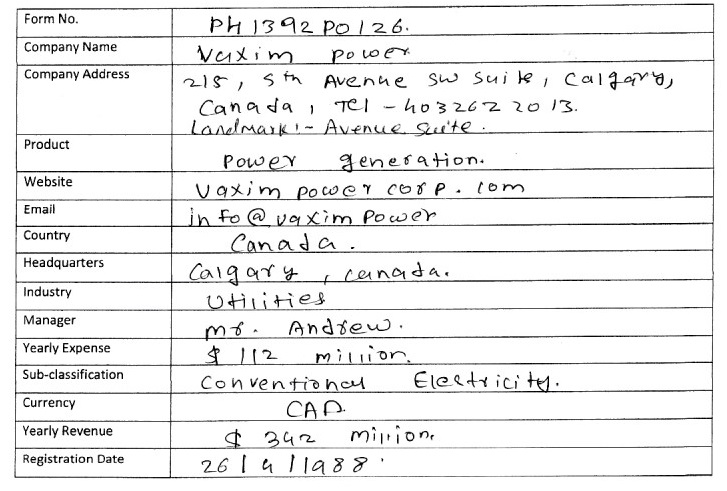 Form No. PH1392PO126.
Company Name Vaxim power
Company Address 215, 5th Avenue sw suite, Calgary,
Canada, Tel - 403262 2013.
Landmark:- Avenue Suite.
Product Power generation.
Website vaxim power corp. com
Email info@vaxim Power
Country Canada.
Headquarters Calgary, canada.
Industry Utilities
Manager mr. Andrew.
Yearly Expense $ 112 million.
Sub-classification Conventional Electricity.
Currency CAD.
Yearly Revenue $ 342 million.
Registration Date 26/4/1988.